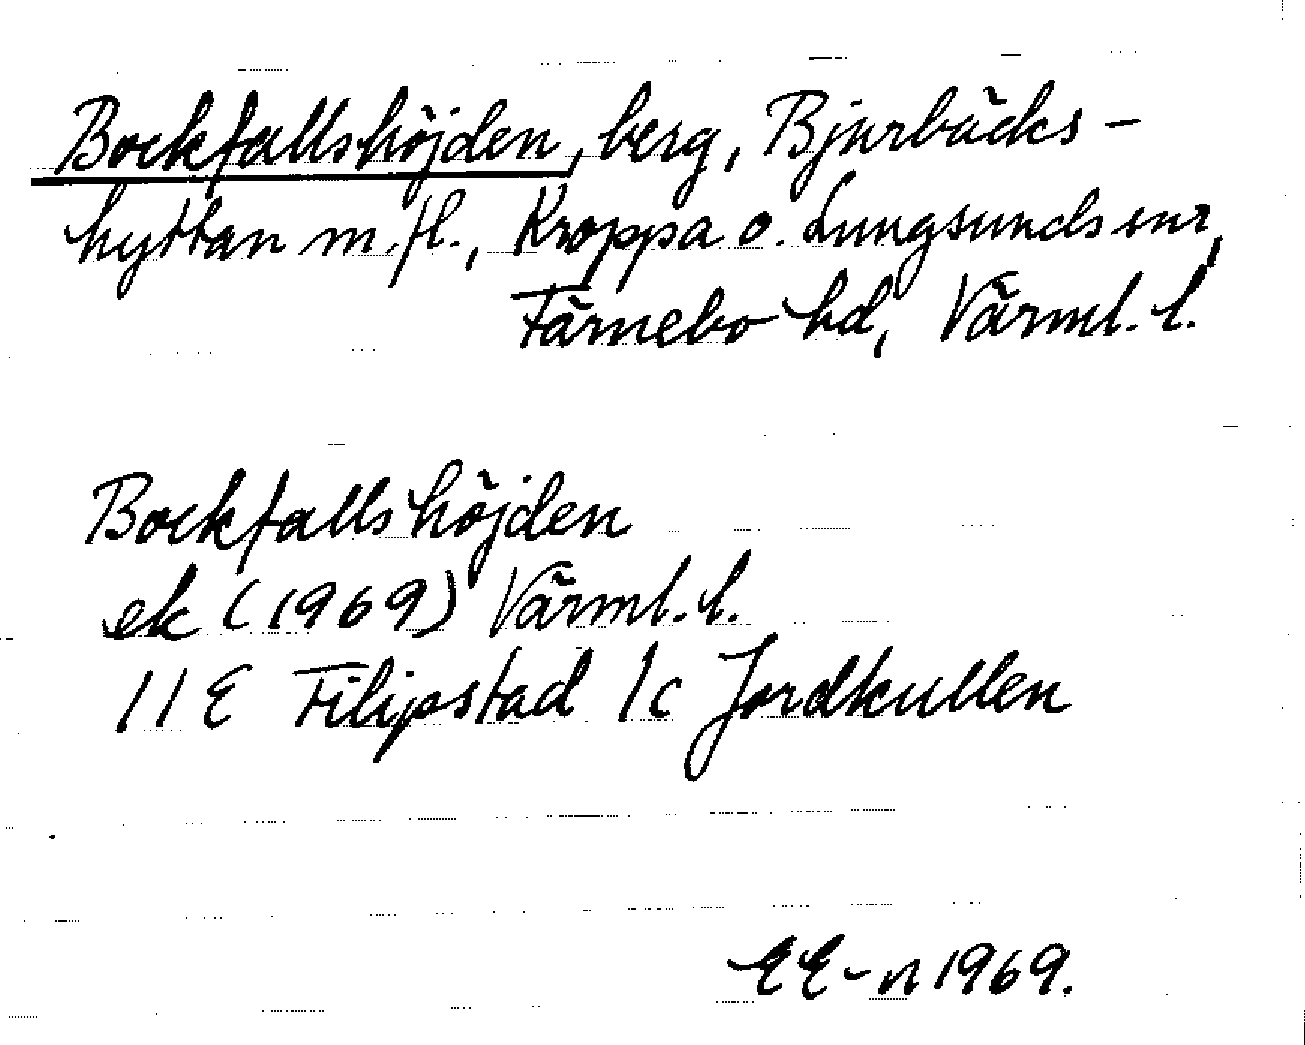 Bockfallshöjden, berg, Bjurbäcks-
hyttan m.fl., Kroppa o. Lungsunds snr,
Färnebo hd, Värml. l.
Bockfallshöjden
ek (1969) Värml. l.
11 E Filipstad 1c Jordkullen
EE-n 1969.